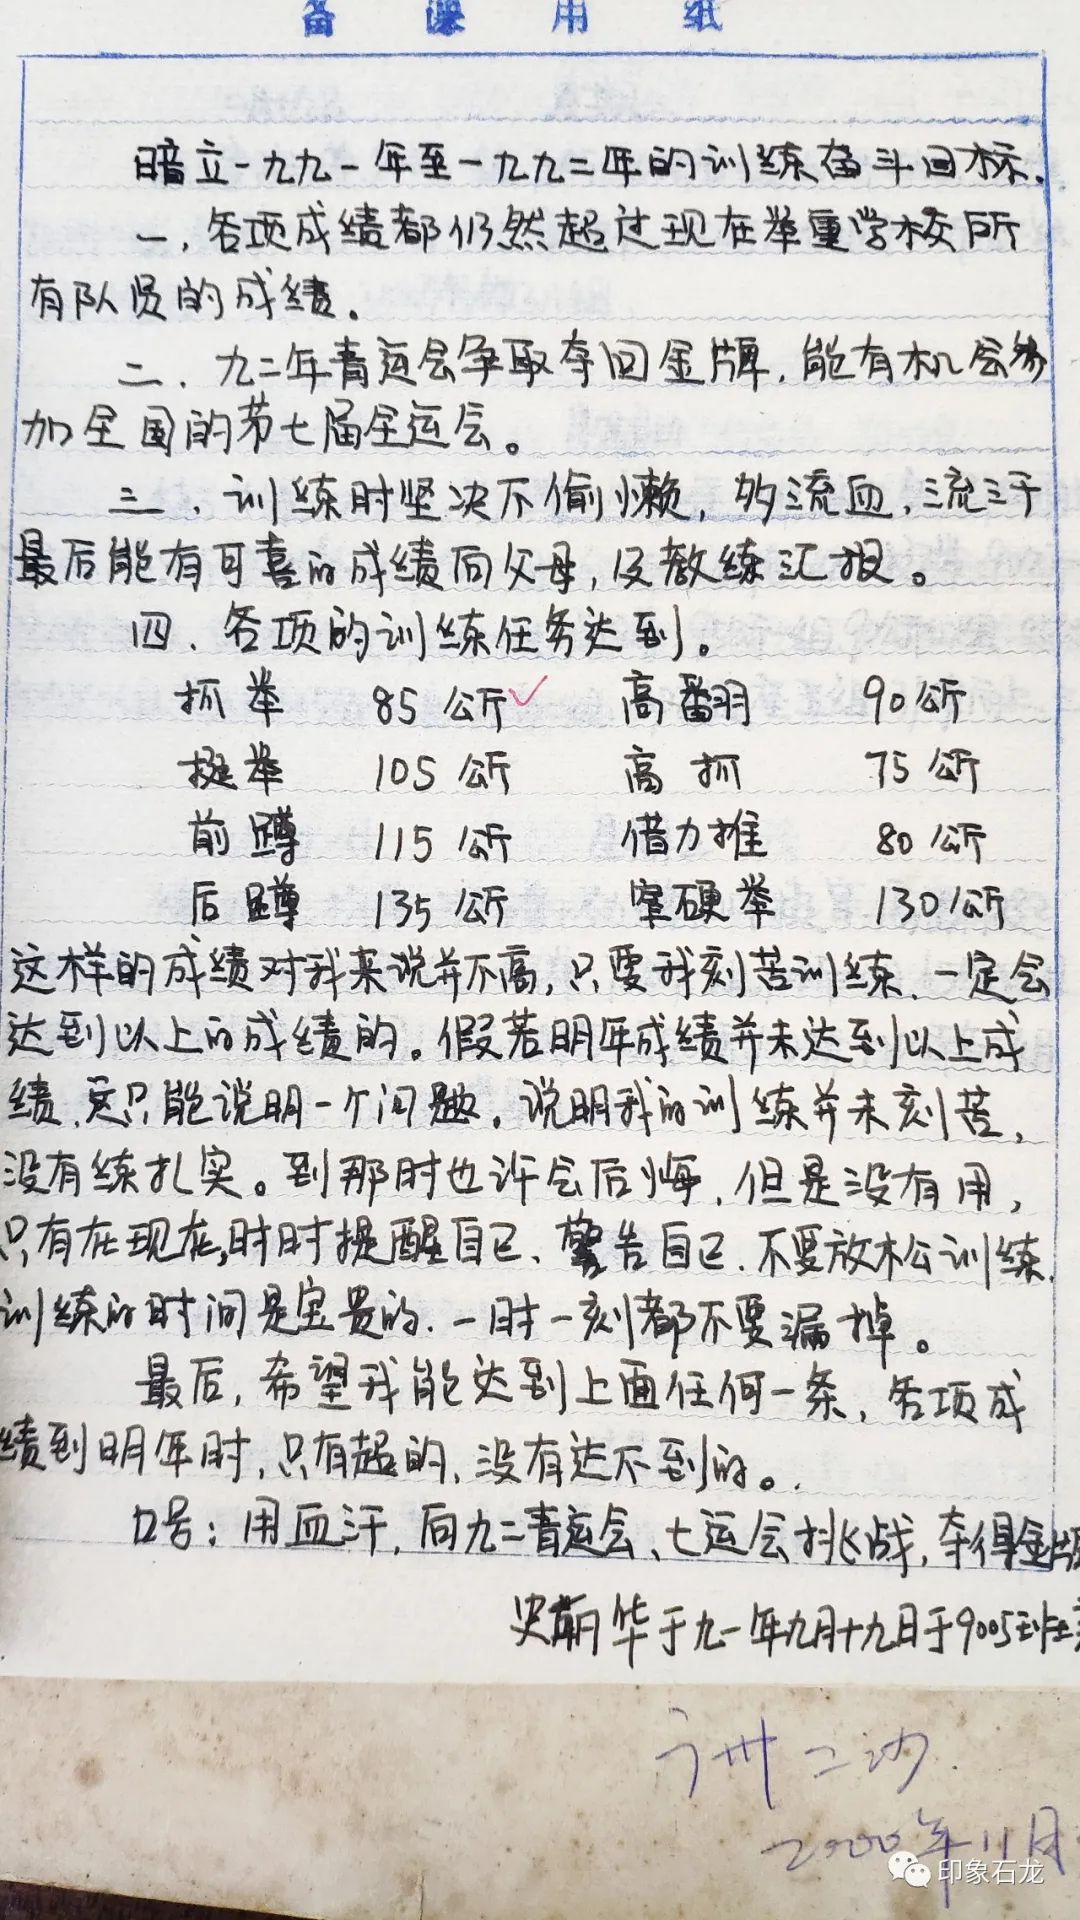 备课用纸
暗立一九九一年至一九九二年的训练奋斗目标.
一,各项成绩都仍然超过现在举重学校所
有队员的成绩。
二、九二年青运会争取夺回金牌,能有机会参
加全国的第七届全运会。
三、训练时坚决不偷懒,多流血,流汗
最后能有可喜的成绩向父母,及教练汇报。
四、各项的训练任务达到。
抓举 85公斤 高翻 90公斤
挺举 105公斤 高抓 75公斤
前蹲 115公斤 借力推 80公斤
后蹲 135公斤 窄硬举 130公斤
这样的成绩对我来说并不高,只要我刻苦训练、一定会
达到以上的成绩的。假若明年成绩并未达到以上成
绩,这只能说明一个问题。说明我的训练并未刻苦,
没有练扎实。到那时也许会后悔,但是没有用,
只有在现在,时时提醒自己、警告自己.不要放松训练.
训练的时间是宝贵的.一时一刻都不要漏掉。
最后,希望我能达到上面任何一条,各项成
绩到明年时,只有超的,没有达不到的。
口号:用血汗,向九二青运会、七运会挑战,夺得金牌
史朝华于九一年九月十九日于9005班
广州二沙
2000年11月
印象石龙